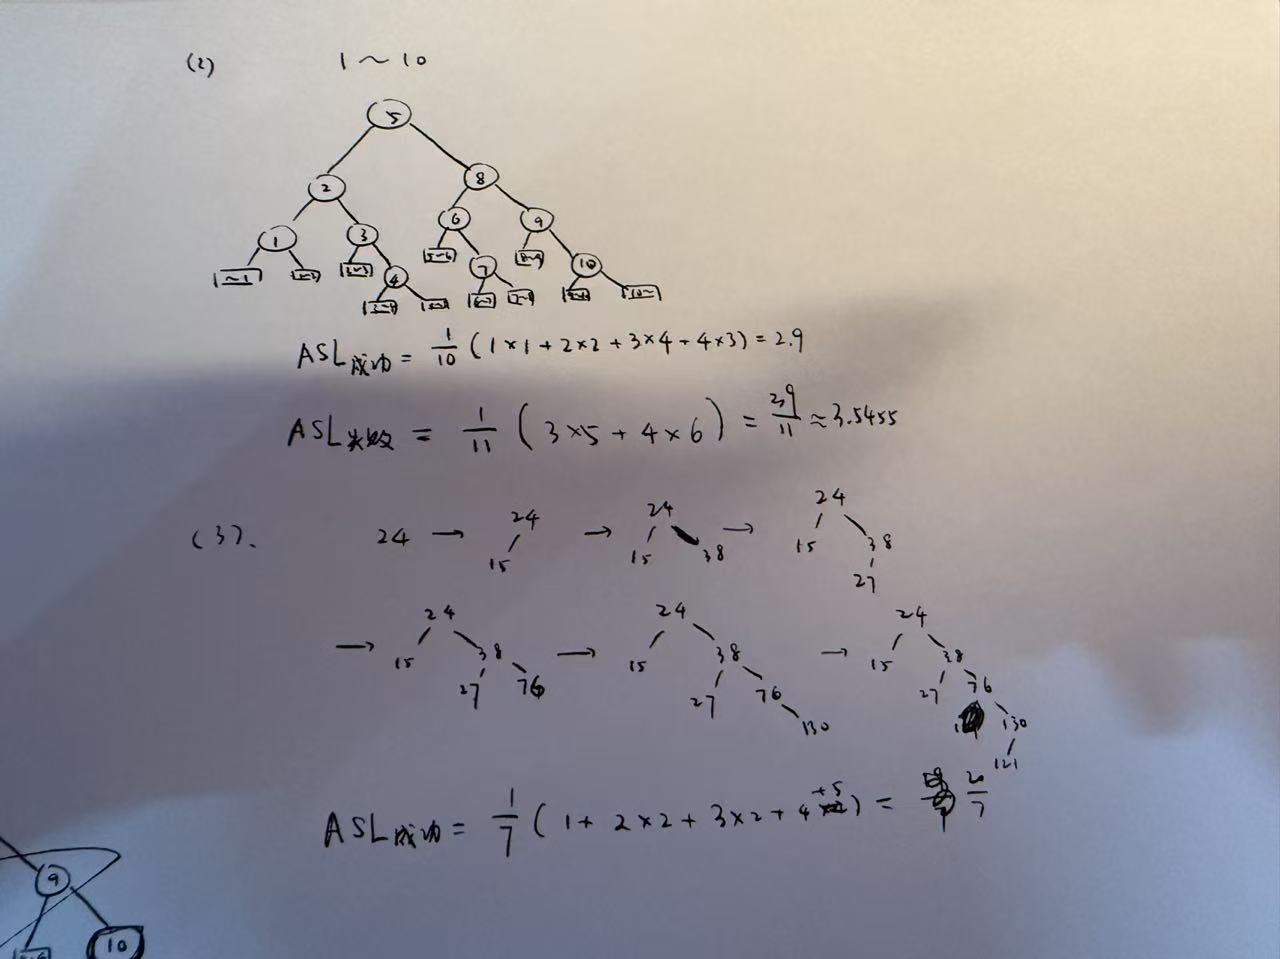 (2) 1～10
5
2 8
1 3 6 9
4 7 10
ASL成功 = 1/10 (1×1+2×2+3×4+4×3) = 2.9
ASL失败 = 1/11 (3×5+4×6) = 39/11 ≈ 3.5455
(3). 24 → 24 15 → 24 15 38 → 24 15 38 27
→ 24 15 38 27 76 → 24 15 38 27 76 130 → 24 15 38 27 76 130 121
ASL成功 = 1/7 (1+2×2+3×2+4+5) = 20/7
9
10